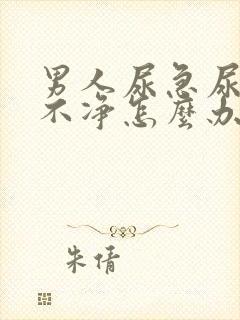 男人尿急尿
不净怎麽办
朱倩